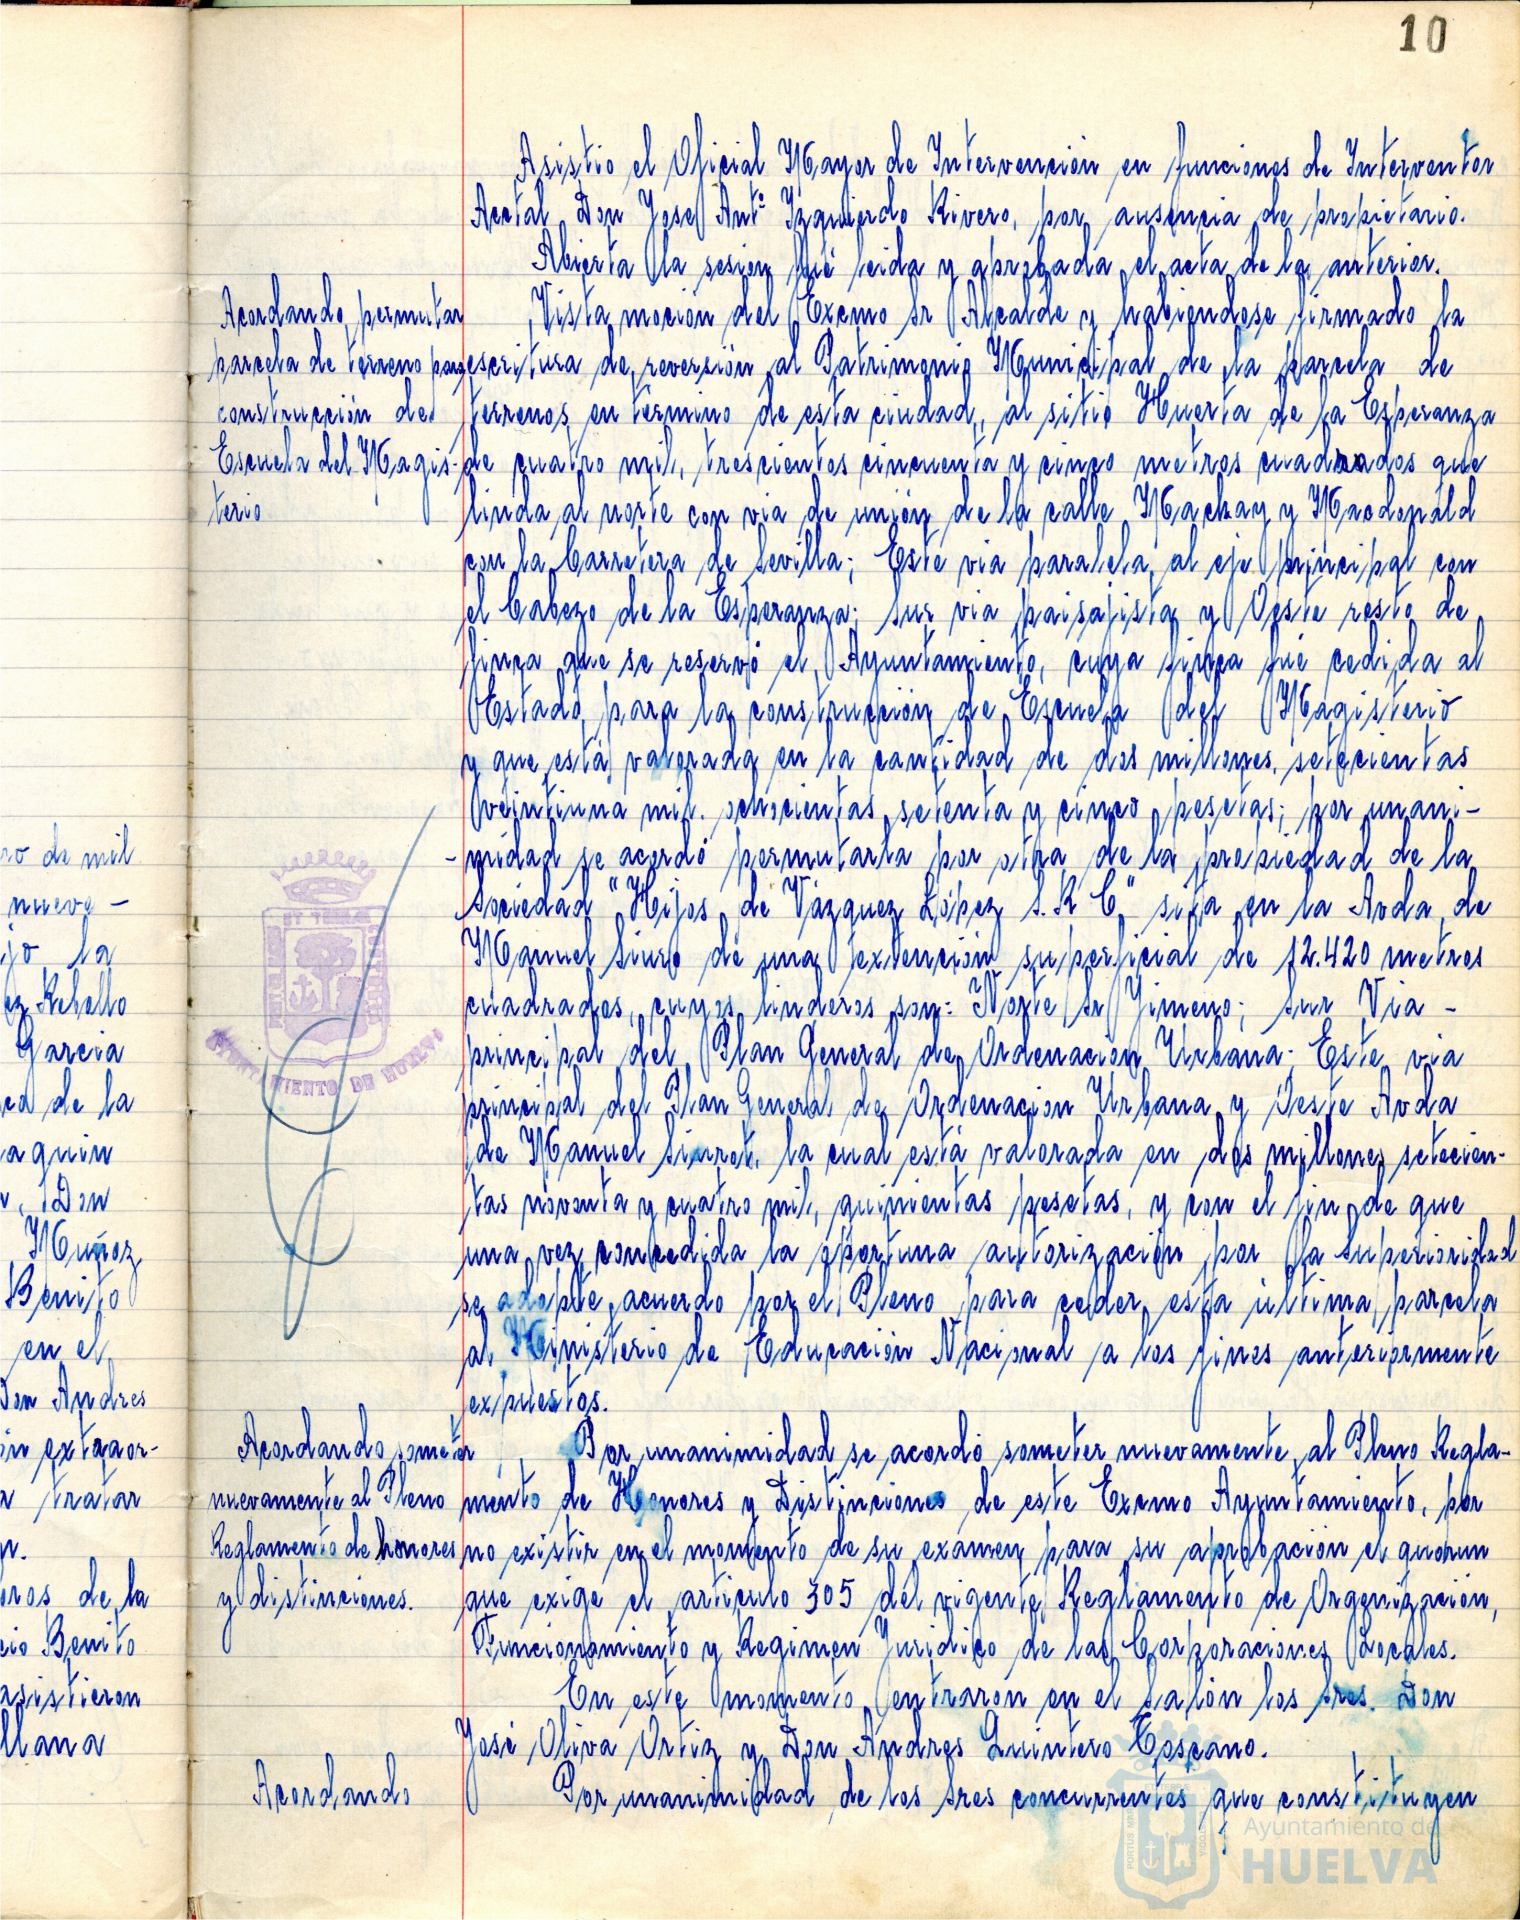 10
Asistio el Oficial Mayor de Intervención en funciones de Interventor
Acctal Don Jose Antº Izquierdo Rivero, por ausencia de propietario.
Abierta la sesion fué leida y aprobada el acta de la anterior.
Acordando permutar
parcela de terreno para
construcción de
Escuela del Magis-
terio
Vista moción del Excmo Sr Alcalde y habiendose firmado la
escritura de reversión al Patrimonio Municipal de la parcela de
terrenos en termino de esta ciudad, al sitio Huerta de la Esperanza
de cuatro mil, trescientos cincuenta y cinco metros cuadrados que
linda al norte con via de unión de la calle Mackay y Macdonald
con la Carretera de Sevilla; Este via paralela al eje principal con
el Cabezo de la Esperanza; Sur via paisajista y Oeste resto de
finca que se reservó el Ayuntamiento, cuya finca fué cedida al
Estado para la construcción de Escuela del Magisterio
y que está valorada en la cantidad de dos millones, setecientas
veintiuna mil. ochocientas setenta y cinco pesetas; por unani-
-midad se acordó permutarla por otra de la propiedad de la
Sociedad "Hijos de Vázquez López S. R C" sita en la Avda de
Manuel Siuro de una extención superficial de 12.420 metros
cuadrados, cuyos linderos son: Norte Sr Jimeno; Sur Via -
principal del Plan General de Ordenación Urbana; Este via
principal del Plan General de Ordenacion Urbana y Oeste Avda
de Manuel Siurot, la cual está valorada en dos millones setecien-
tas noventa y cuatro mil, quinientas pesetas, y con el fin de que
una vez concedida la oportuna autorización por la Superioridad
se adopte acuerdo por el Pleno para ceder esta última parcela
al Ministerio de Educación Nacional a los fines anteriormente
expuestos.
Acordando someter
nuevamente al Pleno
Reglamento de honores
y distinciones.
Por unanimidad se acordó someter nuevamente al Pleno Regla-
mento de Honores y Distinciones de este Excmo Ayuntamiento, por
no existir en el momento de su examen para su aprobación el quorun
que exige el articulo 305 del vigente Reglamento de Organización,
Funcionamiento y Regimen Juridico de las Corporaciones Locales.
En este momento entraron en el salón los Sres. Don
José Oliva Ortiz y Don Andres Quintero Toscano.
Acordando
Por unanimidad de los Sres concurrentes que constituyen
ro de mil
nueve -
jo la
ez Rebollo
Garcia
ca de la
aquin
Don
Muñoz
Benito
en el
Don Andres
ón extraor-
a tratar
oros de la
cio Benito
asistieron
llana
AYUNTAMIENTO DE HUELVA
Ayuntamiento de
HUELVA